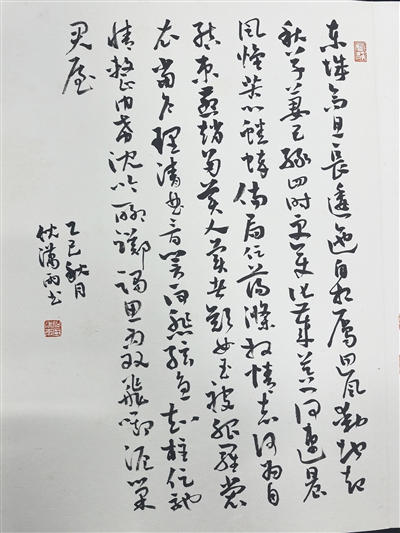 东城高且长逶迤自相属回风动地起
秋草萋已绿四时更变化岁暮一何速晨
风怀苦心蟋蟀伤局促荡涤放情志何为自
结束燕赵多美人美者颜如玉被服罗裳
衣当户理清曲音响一何悲弦急知柱促驰
情整巾带沉吟聊踯躅思为双飞燕衔泥巢
君屋
乙巳秋月
伏雨书